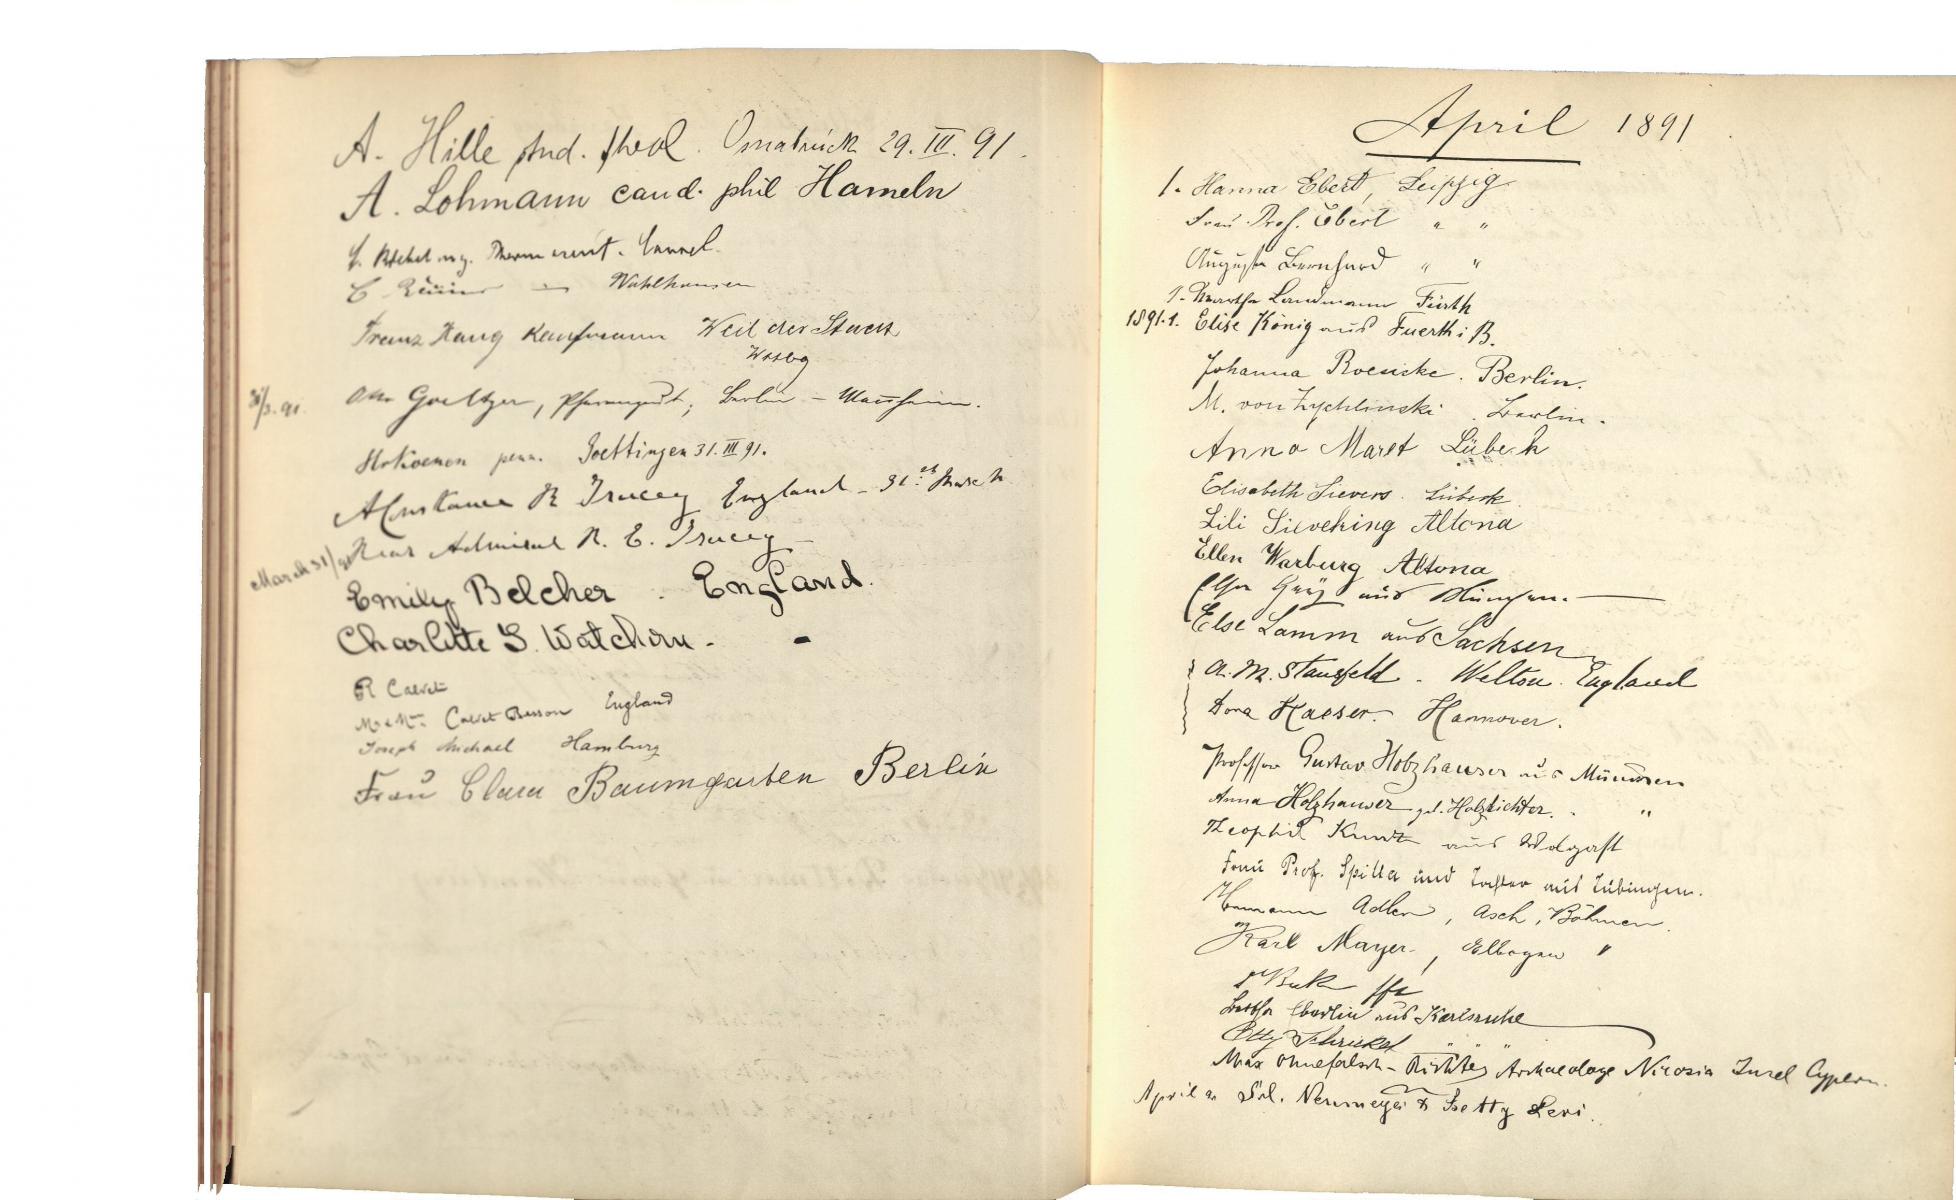 A. Hille stud. theol. Osnabrück 29. III. 91.
A. Lohmann cand. phil Hameln
Wahlhausen
Franz Haug Kaufmann Weil der Stadt
Wttbg
31/3. 91. Otto Goeltzer, Berlin – Mannheim.
Goettingen 31. III 91.
A Constance R Tracey England – 31st March
March 31/91 Rear Admiral R. E. Tracey –
Emily Belcher. England.
Charlotte S. Watchorn. -
R Calvet
Mr & Mme Calvet Besson England
Joseph Michael Hamburg
Frau Clara Baumgarten Berlin
April 1891
1. Hanna Ebert, Leipzig.
Frau Prof. Ebert " "
Auguste Bernhard " "
1. Martha Landmann Fürth
1891.1. Elise König aus Fuerth i B.
Johanna Roenicke. Berlin.
M. von Zychlinski. Berlin.
Anna Maret Lübeck
Elisabeth Sievers. Lübeck
Lili Sieveking Altona
Ellen Warburg Altona
aus München.
Else Lamm aus Sachsen
A. M. Stansfeld. Welton. England
Dora Kaeser. Hannover.
Professor Gustav Holzhauser aus München
Anna Holzhauser "
Theophil Kuntz aus Wolgast
Frau Prof. Spitta und Tochter aus Tübingen.
Hermann Adler, Asch, Böhmen.
Karl Mayer, Elbogen "
Bertha Eberlin aus Karlsruhe
Otty Schrickel " " "
Max Ohnefalsch-Richter Archaeologe Nicosia Insel Cypern.
April 2. Frl. Neumeyer & Betty Levi.